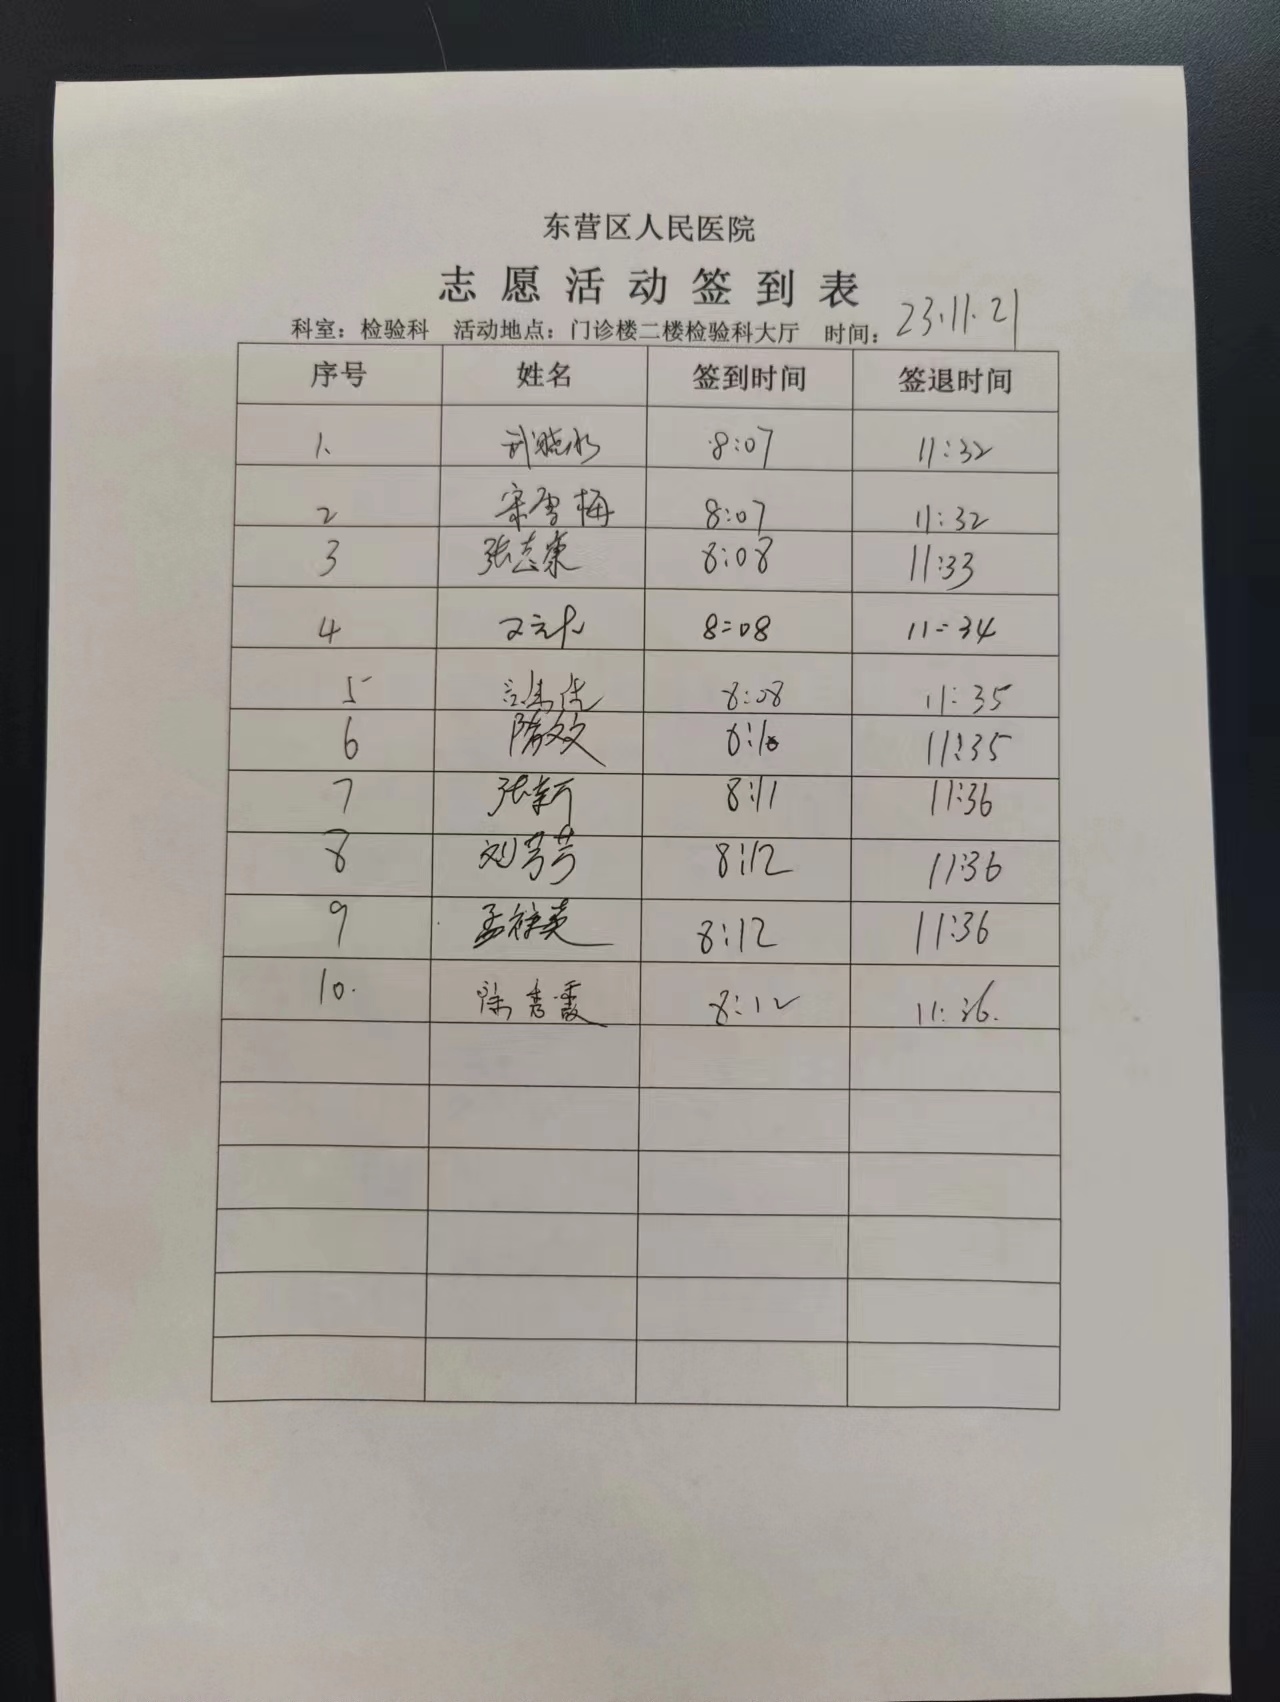 东营区人民医院
志愿活动签到表
科室：检验科 活动地点：门诊楼二楼检验科大厅 时间：23.11.21
序号 姓名 签到时间 签退时间
1. 8:07 11:32
2 宋雪梅 8:07 11:32
3 张志康 8:08 11:33
4 8:08 11:34
5 8:08 11:35
6 隋文文 8:10 11:35
7 张轲 8:11 11:36
8 刘芳芳 8:12 11:36
9 8:12 11:36
10. 徐秀霞 8:12 11:36.